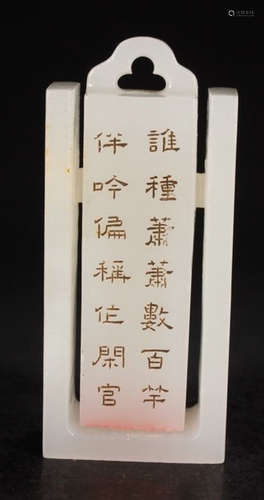 誰種蕭蕭數百竿
伴吟偏稱作閑官